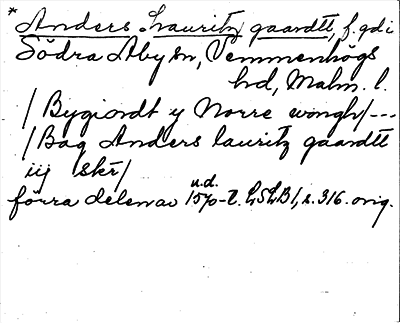 * Anders Lauritz gaardtt, f. gd i
Södra Åby sn, Vemmenhögs
hd, Malm. l.
/ Bygiordt y Norre wongh/---
/ Bag Anders lauritz gaardtt
iij skr/
förra delen av n.d. 1570-t. LSLB1, s. 316. orig.